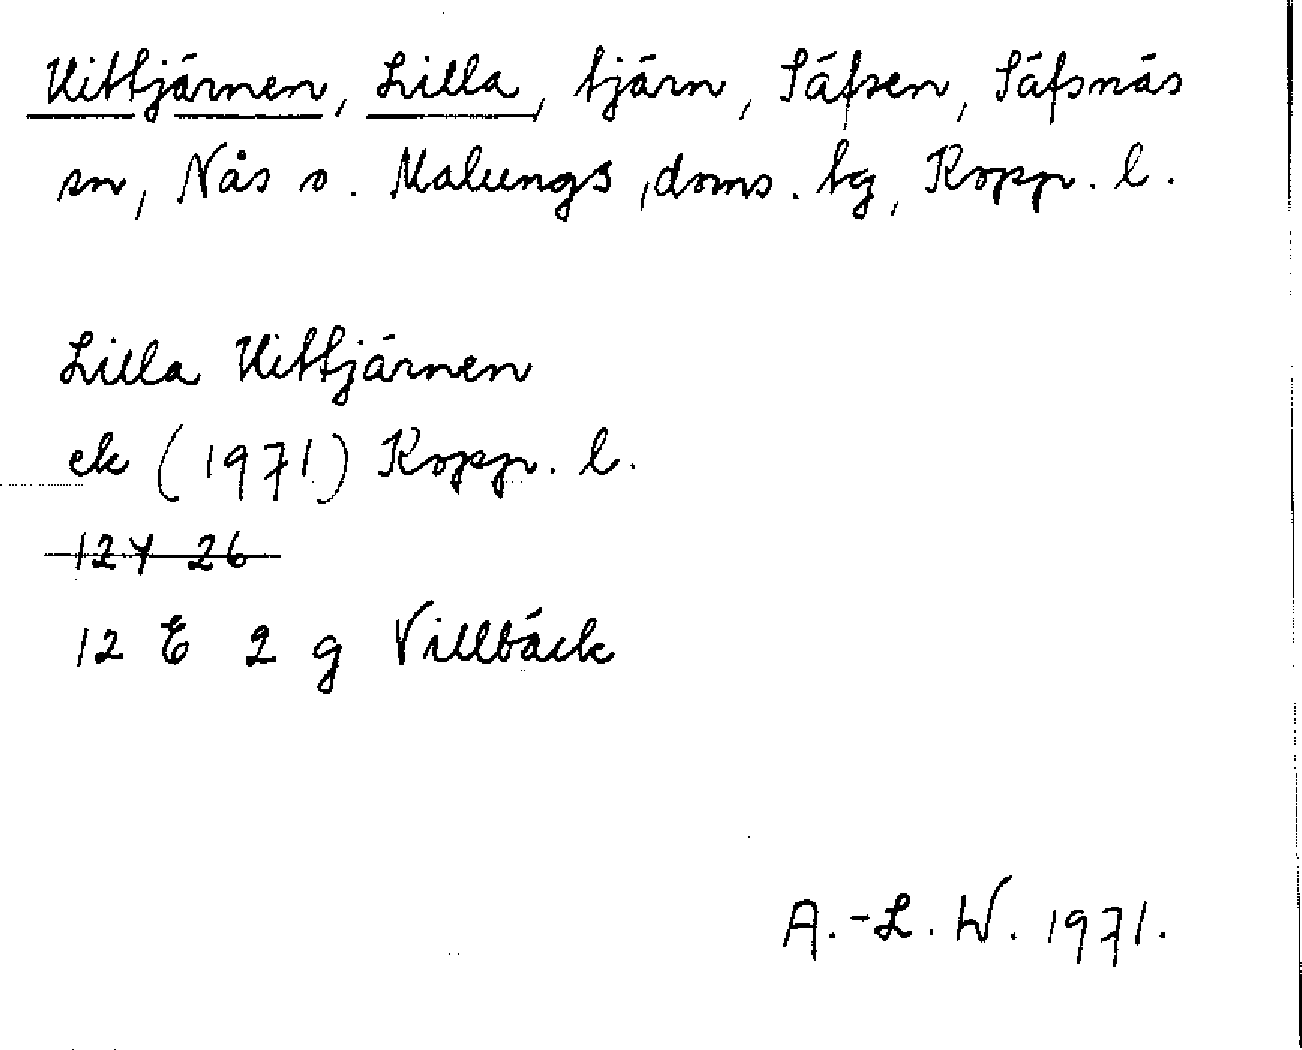 Vittjärnen, Lilla, tjärn, Säfsen, Säfsnäs
sn, Nås o. Malungs, doms. tg, Kopp. l.
Lilla Vittjärnen
ek (1971) Kopp. l.
12Y 26
12 E 2 g Villbäck
A.-L. W. 1971.